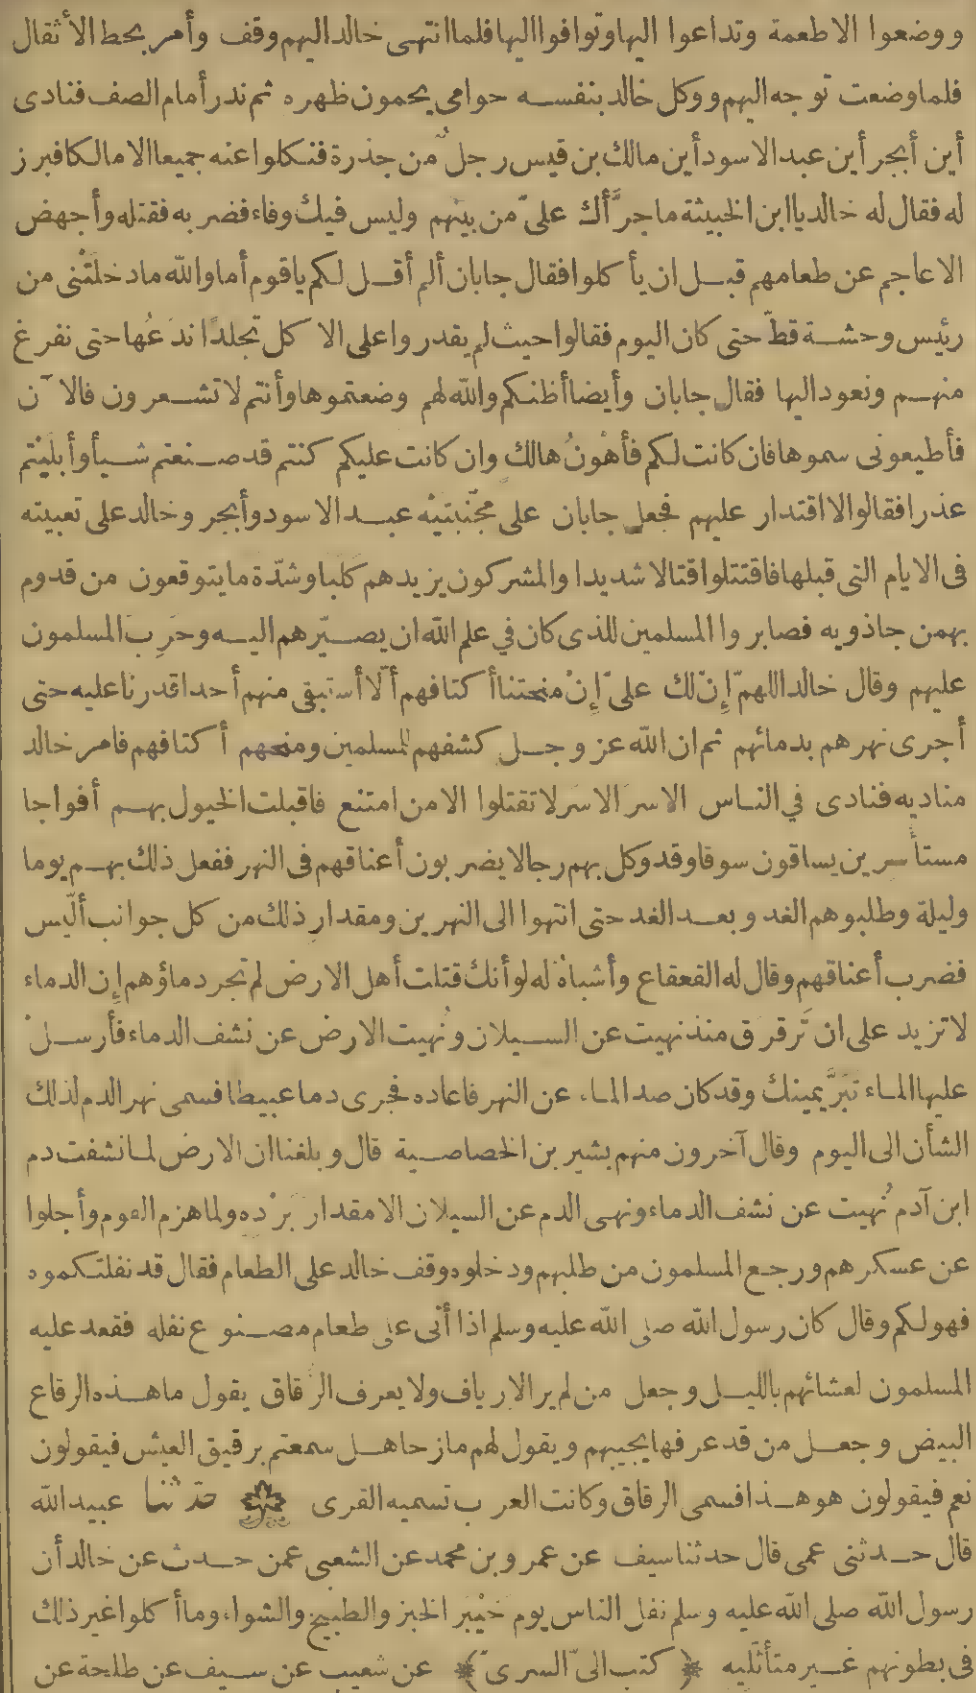 ووضعوا الاطعمة وتداعوا اليها وتوافوا اليها فلما انتهى خالد اليهم وقف وأمر بحط الأثقال
فلما وضعت توجه اليهم ووكل خالد بنفسه حوامى يحمون ظهره ثم ندر أمام الصف فنادى
أين أبجر أين عبد الاسود أين مالك بن قيس رجل من جذرة فنكلوا عنه جميعا الا مالكا فبرز
له فقال له خالد يا ابن الخبيثة ما جرَّأك علىّ من بينهم وليس فيك وفاء فضربه فقتله وأجهض
الاعاجم عن طعامهم قبل ان يأكلوا فقال جابان ألم أقل لكم يا قوم أما والله ما دخلَتْنى من
رئيس وحشة قطّ حتى كان اليوم فقالوا حيث لم يقدروا على الاكل تجلدًا ندَعُها حتى نفرغ
منهم ونعود اليها فقال جابان وأيضا أظنكم والله لهم وضعتموها وأنتم لا تشعرون فالآن
فأطيعونى سموها فان كانت لكم فأهونُ هالك وان كانت عليكم كنتم قد صنعتم شيأ وأبلَيْتم
عذرا فقالوا لا اقتدار عليهم فجعل جابان على مجَنّبَتَيْه عبد الاسود وأبجر وخالد على تعبيته
فى الايام التى قبلها فاقتتلوا قتالا شديدا والمشركون يزيدهم كَلَبا وشدّة ما يتوقعون من قدوم
بهمن جاذويه فصابروا المسلمين للذى كان في علم الله ان يصيّرهم اليه وحَرِبَ المسلمون
عليهم وقال خالد اللهمّ إنّ لك علىّ إنْ منحتنا أكتافهم ألّا أستبقى منهم أحدا قدرنا عليه حتى
أجرى نهرهم بدمائهم ثم ان الله عز وجل كشفهم للمسلمين ومنحهم أكتافهم فأمر خالد
مناديه فنادى في الناس الاسرَ الاسرَ لا تقتلوا الا من امتنع فاقبلت الخيول بهم أفواجا
مستأسرين يساقون سوقا وقد وكل بهم رجالا يضربون أعناقهم فى النهر ففعل ذلك بهم يوما
وليلة وطلبوهم الغد وبعد الغد حتى انتهوا الى النهرين ومقدارِ ذلك من كل جوانب ألّيس
فضرب أعناقهم وقال له القعقاع وأشباهٌ له لو أنك قتلت أهل الارض لم تجر دماؤهم إن الدماء
لا تزيد على ان تَرقرق منذ نهيت عن السيلان ونُهيت الارض عن نشف الدماء فأرسلْ
عليها الماء تبَرَّ يمينك وقد كان صد الماء عن النهر فاعاده فجرى دما عبيطا فسمى نهر الدم لذلك
الشأن الى اليوم وقال آخرون منهم بشير بن الخصاصية قال وبلغنا ان الارض لما نشفت دم
ابن آدم نُهيت عن نشف الدماء ونهى الدم عن السيلان الا مقدار بَرْده ولما هزم القوم وأجلوا
عن عسكرهم ورجع المسلمون من طلبهم ودخلوه وقف خالد على الطعام فقال قد نفلتكموه
فهو لكم وقال كان رسول الله صلى الله عليه وسلم اذا أتى على طعام مصنوع نفله فقعد عليه
المسلمون لعشائهم بالليل وجعل من لم ير الارياف ولا يعرف الرُقاق يقول ما هذه الرقاع
البيض وجعل من قد عرفها يجيبهم ويقول لهم مازحا هل سمعتم برقيق العيش فيقولون
نعم فيقولون هو هذا فسمى الرقاق وكانت العرب تسميه القرى حدّثنا عبيد الله
قال حدثنى عمى قال حدثنا سيف عن عمرو بن محمد عن الشعبى عمن حدث عن خالد أن
رسول الله صلى الله عليه وسلم نفل الناس يوم خَيْبَر الخبز والطبيخ والشواء وما أكلوا غير ذلك
فى بطونهم غير متأثّليه ﴿ كتب الىّ السرىّ ﴾ عن شعيب عن سيف عن طلحة عن